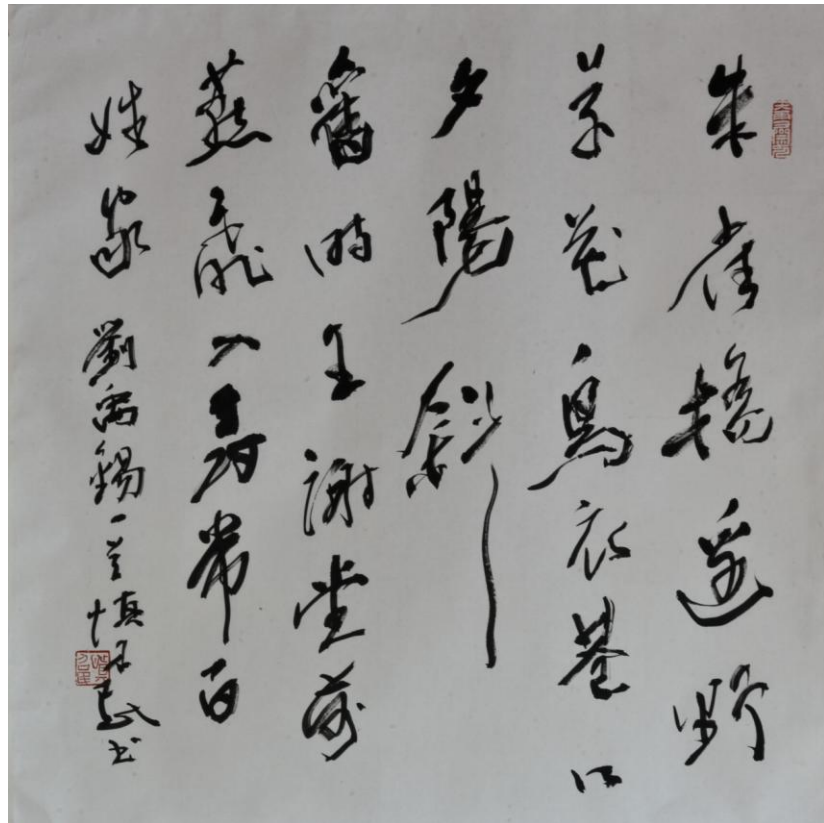 朱雀橋邊野
草花烏衣巷口
夕陽斜
舊時王謝堂前
燕飛入尋常百
姓家 劉禹錫一首慎書